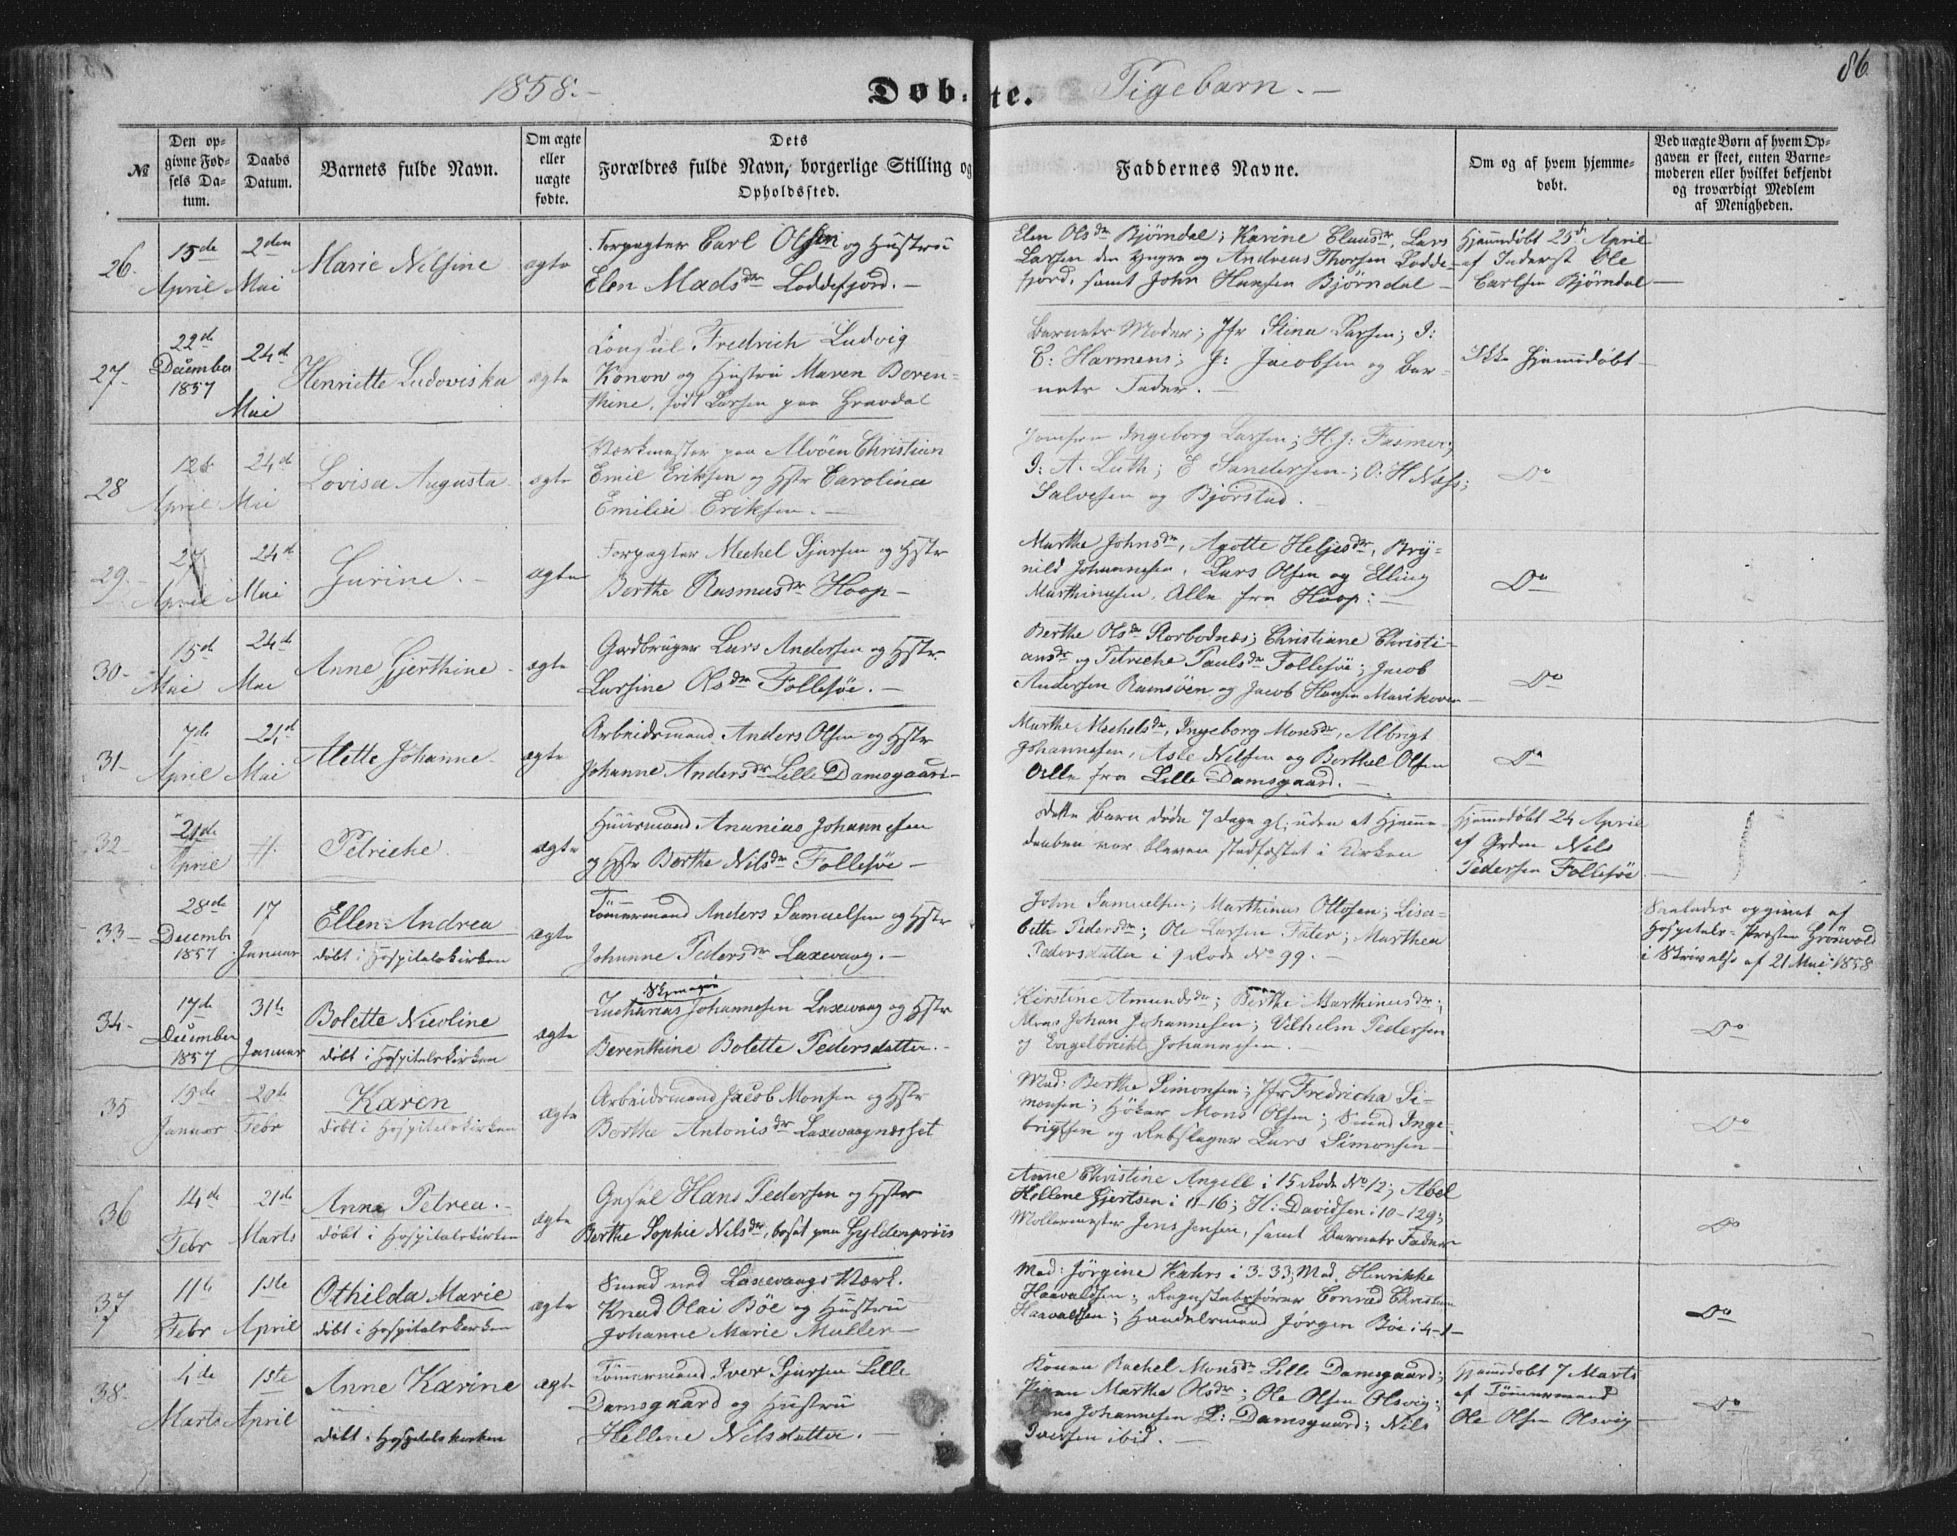 1858.-
Døbte.
Pigebarn.-
86
№
Den opgivne Fødsels Datum.
Daabs Datum.
Barnets fulde Navn.
Om ægte eller uægte fødte.
Dets Forældres fulde Navn, borgerlige Stilling og Opholdssted.
Faddernes Navne.
Om og af hvem hjemmedøbt.
Ved uægte Børn af hvem Opgaven er skeet, enten Barnemoderen eller hvilket bekjendt og troværdigt Medlem af Menigheden.
26.
15de
April
2den
Mai
Marie Nilsine
ægte
Forpagter Carl Olsen og Hustru
Elen Madsdr Loddefjord.-
Elen Olsdr Bjørndal; Karine Clausdr, Lars
Larsen den Yngre og Andreas Thorsen Lodde-
fjord, samt John Hansen Bjørndal-
Hjemmdøbt 25d April
af Inderst Ole
Carlsen Bjørndal-
27-
22d
December
1857
24d
Mai
Henriette Ludoviska
ægte
Consul Fredrich Ludvig
Konow og Hustru Maren Beren-
thine, født Larsen paa Gravdal
Barnets Moder; Jfr Stina Larsen; I:
C: Harmens; J: Jacobsen og Bar-
nets Fader.-
Ikke Hjemmdøbt-
28
12te
April
24d
Mai
Lovisa Augusta
ægte
Værkmester paa Alvøen Christian
Emil Eriksen og Hstr Carolina
Emilia Eriksen.-
Jomfru Ingeborg Larsen; H. J: Fasmer;
I: A. Luth; E Sandersen; O: H Næss;
Salvesen og Bjørstad.
Do
29.
27
April
24d
Mai
Gurine.-
ægte
Forpagter Mechel Sjursen og Hstr
Berthe Rasmusdr Hoop-
Marthe Johnsdr, Agotte Heljesdr, Bry-
nild Johannesen, Lars Olsen og Elling
Marthinusen, Alle fra Hoop:-
Do
30-
15d
Mai
24d
Mai
Anne Gjerthine
ægte
Gardbruger Lars Andersen og Hstr
Larsine Olsdr Follesøe.-
Berthe Olsdr Storbodnæs; Christiane Christi-
ansdr og Petriche Paulsdr Follesøe; Jacob
Andersen Ramsøen og Jacob Hansen Marikoven
Do
31-
7de
April
24d
Mai
Alette Johanne
ægte
Arbeidsmand Anders Olsen og Hstr
Johanne Andersdr Lille Damsgaard-
Marthe Mechelsdr, Ingeborg Monsdr, Albrigt
Johannesen, Asle Nilsen og Berthel Olsen
Alle fra Lille Damsgaard.-
Do
32-
21de
April
Petriche.
ægte
Huusmand Ananias Johannesen
og Hstr Berthe Nilsdr Follesøe-
Dette Barn døde 7 Dage gl: uden at Hjemme-
daaben var bleven stadfæstet i Kirken
Hjemmedøbt 24 April
af Grdm Nils
Pedersen Follesøe
33-
28de
Decembr
1857
17
Januar
Ellen Andrea
døbt i Hospitalskirken
ægte
Tømmermand Anders Samuelsen og Hstr
Johanne Pedersdr Laxevaag.-
John Samuelsen; Marthinus Ottosen; Lisa-
beth Pedersdr; Ole Larsen Sæter; Marthea
Pedersdatter i 9 Rode No 99.-
Saaledes opgivet af
Hospitals-Præsten Grønvold
i Skrivelse af 21 Mai 1858
34-
17de
December
1857
31te
Januar
Bolette Nicoline
døbt i Hospitalskirken
ægte
Zacharias Johannesen Laxevaag og Hstr
Berenthine Bolette Pedersdatter.-
Kirstine Amundsdr; Berthe Marthinusdr;
Mons Johan Johannesen; Vilhelm Pedersen
og Engelbricht Johannesen.-
Do
35
19de
Januar
20de
Febr
Karen
døbt i Hospitalskirken
ægte
Arbeidsmand Jacob Monsen og Hstr
Berthe Antonisdr Laxevaagnæsset
Mad: Berthe Simonsen; Jfr Fredricha Si-
monsen; Høker Mons Olsen; Smed Inge-
brigtsen og Rebslager Lars Simonsen-
Do
36
14de
Febr
21de
Marts
Anna Petrea.-
døbt i Hospitalskirken
ægte
Gesel Hans Pedersen og Hstr
Berthe Sophie Nilsdr, bosat paa Gyldenpriis
Anne Christine Angell i 15 Rode No 12; Abel
Hellene Gjertsen i 11-16; H: Davidsen i 10-129;
Møllermester Jens Jensen, samt Barnets Fader-
Do
37
11te
Febr
1ste
April
Othilda Marie
døbt i Hospitalskirken
ægte
Smed ved Laxevaags Værk.
Knud Olai Bøe og Hustru
Johanne Marie Muller-
Mad: Jørgine Kahrs i 3-33; Mad. Henrikke
Haavaldsen; Regnskabsfører Conrad Christian
Haavaldsen; Handelsmand Jørgen Bøe i 4-1-
Do
38.
4de
Marts
1ste
April
Anne Karine
døbt i Hospitalskirken
ægte
Tømmermand Iver Sjursen Lille
Damsgaard og Hustru
Hellene Nilsdatter.-
Konen Rachel Monsdr Lille Damsgaard;
Pigen Marthe Olsdr; Ole Olsen Olsvig;
Johannesen L: Damsgaard; Nils
Iversen ibid.-
Hjemmdøbt 7 Marts
af Tømmermand
Ole Olsen Olsvig-
Do